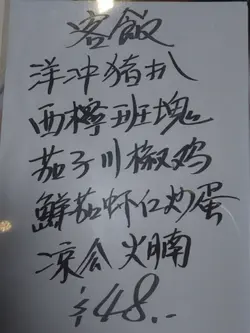 客飯
洋冲猪扒
西檸班塊
茄子川椒鸡
鮮茄虾仁炒蛋
凉瓜火腩
$48..